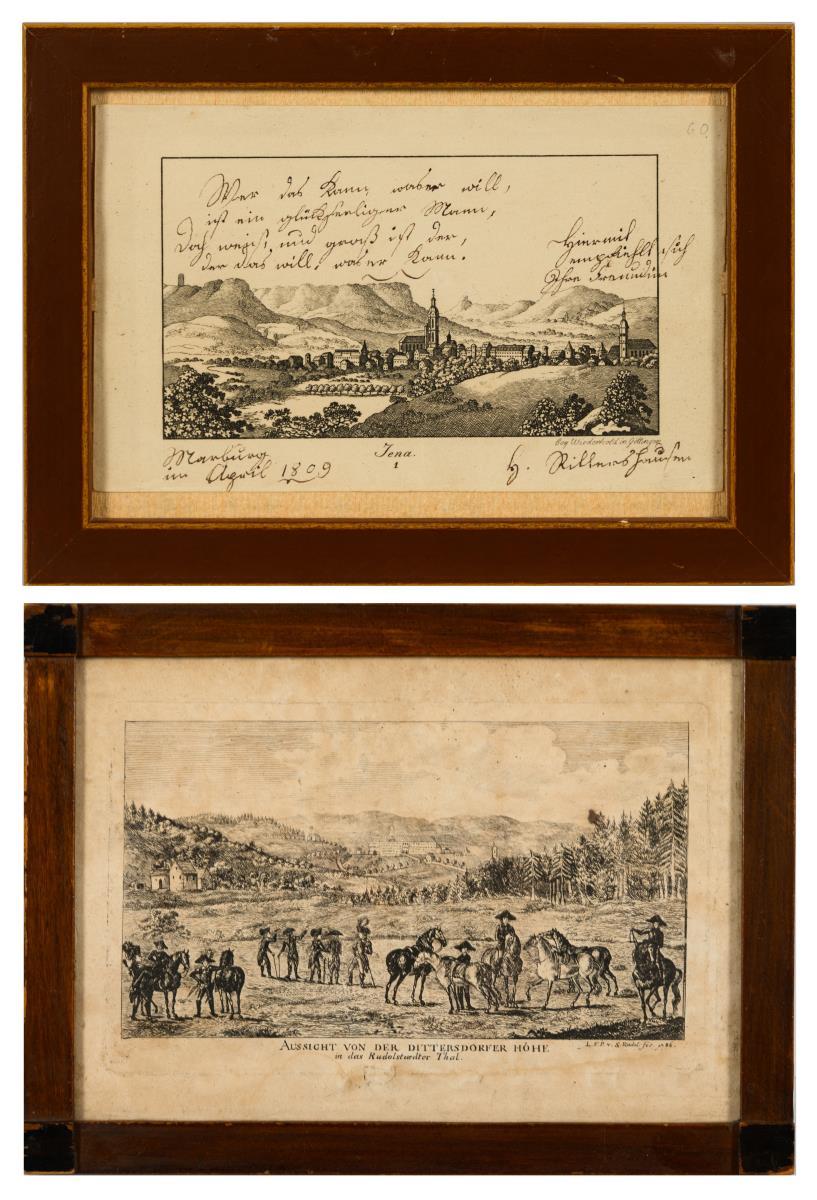 60.
Wer das kann, was er will,
ist ein glükseeliger Mann,
Doch weist und groß ist der,
der das will, was er kann.
Hiermit
empfiehlt sich
Ihre Freundin
Marburg
im April 1809
Jena.
1
bey Wiederhold in Göttingen
H. Rittershausen
AUSSICHT VON DER DITTERSDORFER HÖHE
in das Rudolstædter Thal.
L. F. P. v. S. Rudol. fec. 1786.